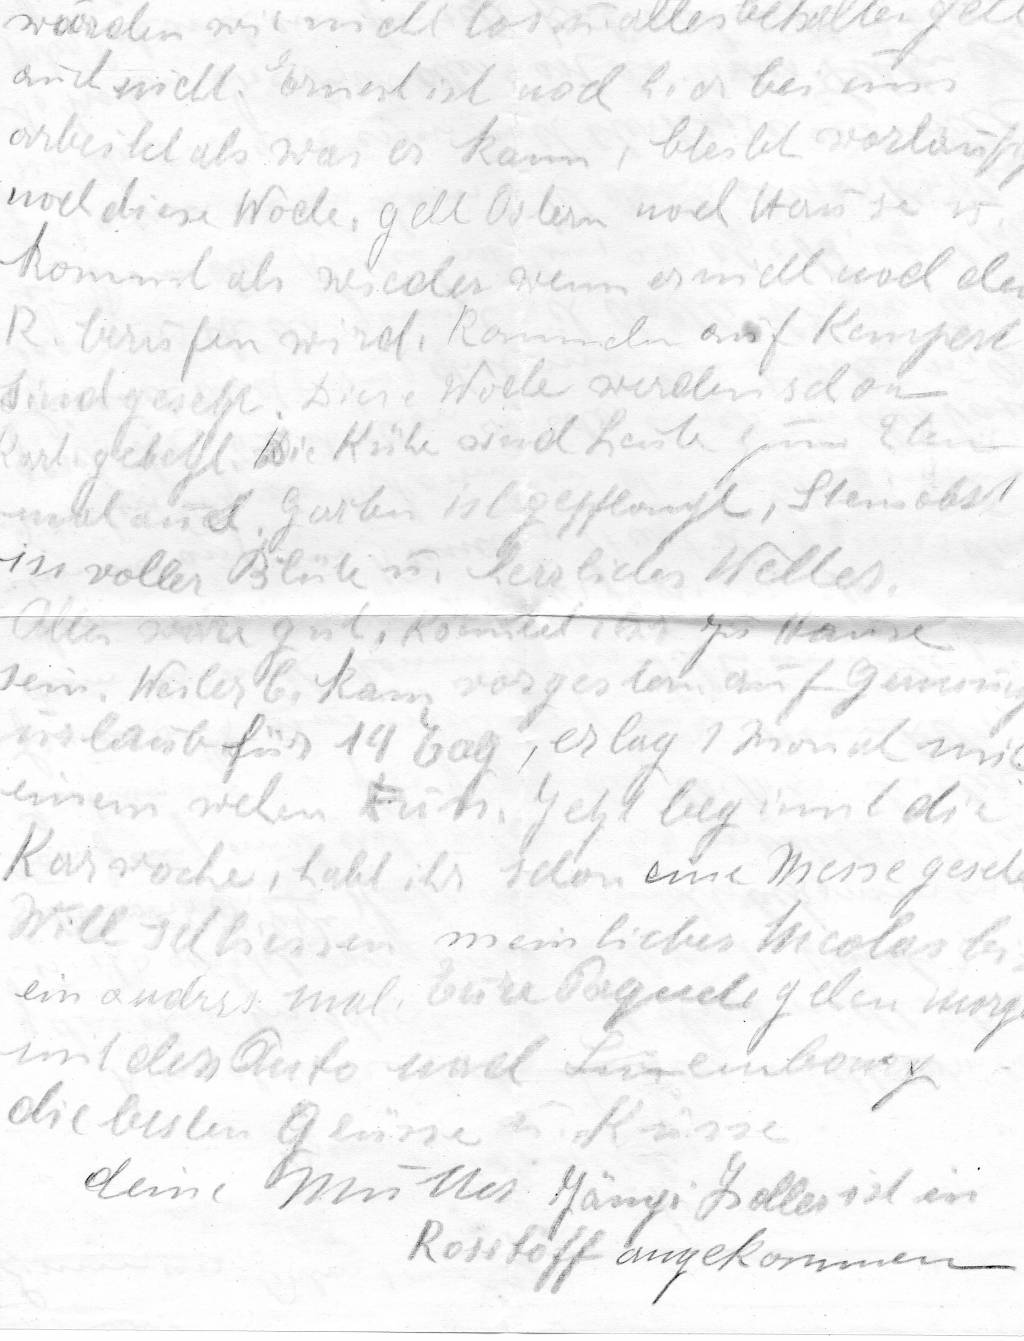 würden wir nicht los u alles behalten geht
auch nicht. Ernest ist noch hier bei uns
arbeitet als was er kann, bleibt vorläufig
noch diese Woche, geht Ostern nach Hause u.
kommt als wieder wenn er nicht nach dem
R. berufen wird. Rommeln auf Kempest
sind gesetzt. Diese Woche werden schon
Kart. gehofft. Die Kühe sind heute zum
mal auch. Garten ist gepflanzt, Steinobst
in voller Blüte u. herrliches Wetter.
Alles wäre gut, könntet ihr zu Hause
sein. Weiler B. kam vorgestern auf Genesungs
urlaub für 14 Tag, er lag 1 Monat mit
einem wehen Fuss. Jetzt beginnt die
Karwoche, habt ihr schon eine Messe gesehen
Will schliessen mein lieber Nicolas bis
ein andres mal. Eure Paquete gehen morgen
mit der Auto nach Luxembourg
die besten Grüsse u. Küsse
deine Mutter Jängi Zeller ist in
Rosstoff angekommen